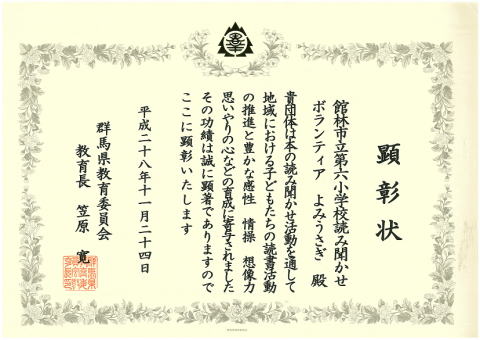 顕彰状
館林市立第六小学校読み聞かせ
ボランティア よみうさぎ 殿
貴団体は本の読み聞かせ活動を通して
地域における子どもたちの読書活動
の推進と豊かな感性 情操 想像力
思いやりの心などの育成に寄与されました
その功績は誠に顕著でありますので
ここに顕彰いたします
平成二十八年十一月二十四日
群馬県教育委員会
教育長 笠原 寛